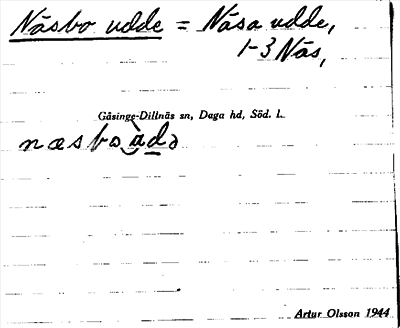 Näsbo udde = Näsa udde,
1-3 Näs,
Gåsinge-Dillnäs sn, Daga hd, Söd. l.
næsbo
Artur Olsson 1944